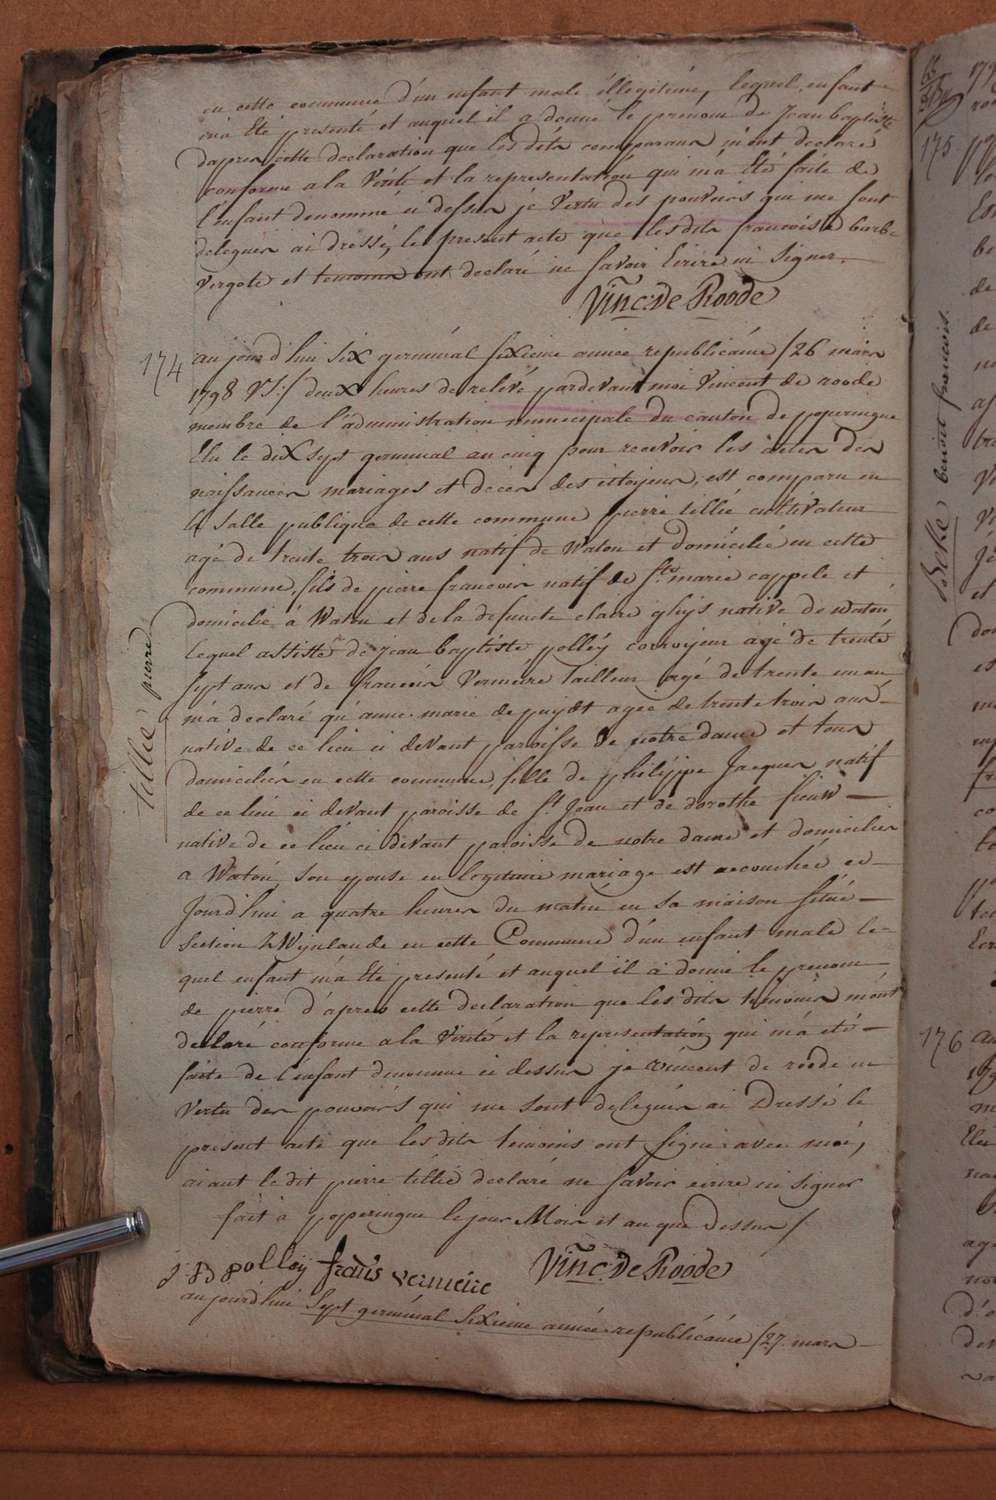 en cette commune d'un enfant male illegitime, lequel enfant
m'a Eté presenté et auquel il a donné le prenom de Jean baptiste
dapres cette declaration que les dits comparans m'ont declaré
conforme a la Verité et la representation qui m'a Eté faite de
l'enfant denommé ci dessus je Vertu des pouvoirs qui me sont
deleguer ai dressé, le present acte que les dits francoise barbe
vergote et temoins ont declaré ne savoir Ecrire ni signer.
Vinc: De Roode
174
au jourd'hui six germinal sixieme année republicaine /26 mars
1798 VS:/ deux heures de relevé pardevant moi Vincent de roode
membre de l'administration municipale du canton de poperingue
Elu le dix sept germinal an cinq pour recevoir les actes des
naissances mariages et décès des citoijens, est comparu en
la salle publique de cette commune pierre tillie cultivateur
agé de trente trois ans natif de Watou et domicilié en cette
commune, fils de piere francois natif de Ste marie cappele et
domicilié à Watou et de la defuncte claire ghijs native de watou
lequel assisté de jean baptiste polleij corroijeur agé de trente
sept ans et de francois Vermeire tailleur agé de trente un an
m'a declaré qu'anne marie de puijdt agee de trente trois ans
native de ce lieu ci devant paroisse de notre dame et tous
domiciliés en cette commune, fille de philippe Jacques natif
de ce lieu ci devant paroisse de St Jean et de dorothe fieuw
native de ce lieu ci devant paroisse de notre dame et domicilier
a Watou, son epouse en legitime mariage est accouchée ce
Jourd'hui a quatre heures du matin en sa maison située
section Zwijnlande en cette Commune d'un enfant male le=
quel enfant m'a Eté presenté et auquel il a donné le prenom
de pierre d'apres cette declaration que les dits temoins m'ont
declaré conforme a la Verité et la representation qui m'a eté
faite de l'enfant denommé ci dessus je vincent de roode en
vertu des pouvoirs qui me sont deleguér ai Dressé le
present acte que les dits temoins ont signé avec moi,
aiant le dit pierre tillie declaré ne savoir ecrire ni signer
fait à poperingue le jour Mois et an que dessus /
J B polleij frans vermeire Vinc: De Roode
aujourd'hui Sept germinal Sixieme année republicaine /27 mars
tillie pierre
175
Bekke benoit francois.
176